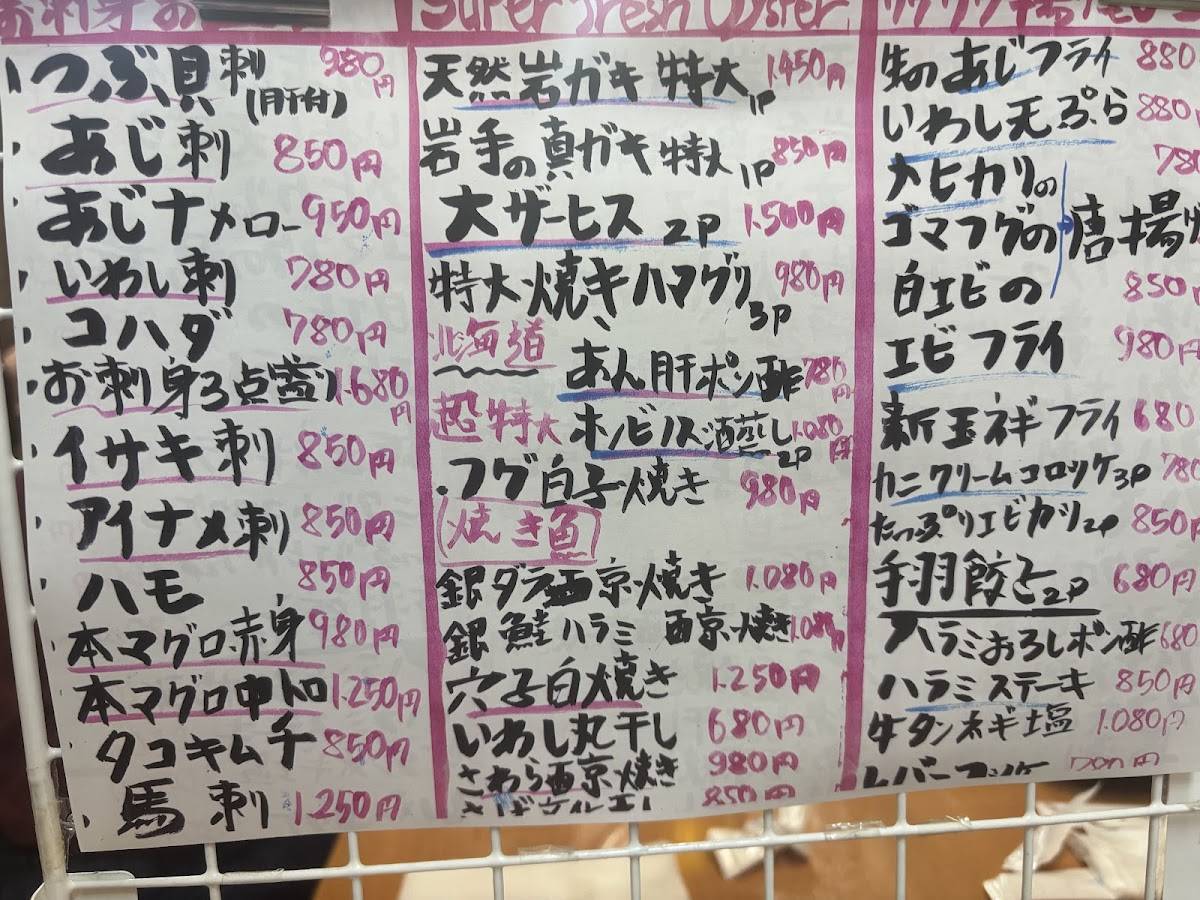 お刺身
つぶ貝刺 980円
(肝付)
あじ刺 850円
あじナメロー 950円
いわし刺 780円
コハダ 780円
お刺身3点盛り 1.680円
イサキ刺 850円
アイナメ刺 850円
ハモ 850円
本マグロ赤身 980円
本マグロ中トロ 1.250円
タコキムチ 850円
馬刺 1.250円
Super fresh Oyster
天然岩ガキ特大 1P 1.450円
岩手の真ガキ特大 1P 850円
大サービス 2P 1.500円
特大焼きハマグリ 3P 980円
北海道 あん肝ポン酢 780円
超特大 ホンビノス酒蒸し 2P 1.080円
フグ白子焼き 980円
焼き魚
銀ダラ西京焼き 1.080円
銀鮭ハラミ 西京焼き 1.080円
穴子白焼き 1.250円
いわし丸干し 680円
さわら西京焼き 980円
850円
生のあじフライ 880
いわし天ぷら 880
メヒカリの 780
ゴマフグの 唐揚げ
白エビの 850円
エビフライ 980円
新玉ネギフライ 680
カニクリームコロッケ 3P 780
たっぷりエビカツ 2P 850円
手羽餃子 2P 680円
ハラミおろしポン酢 680
ハラミステーキ 850円
牛タンネギ塩 1.080円